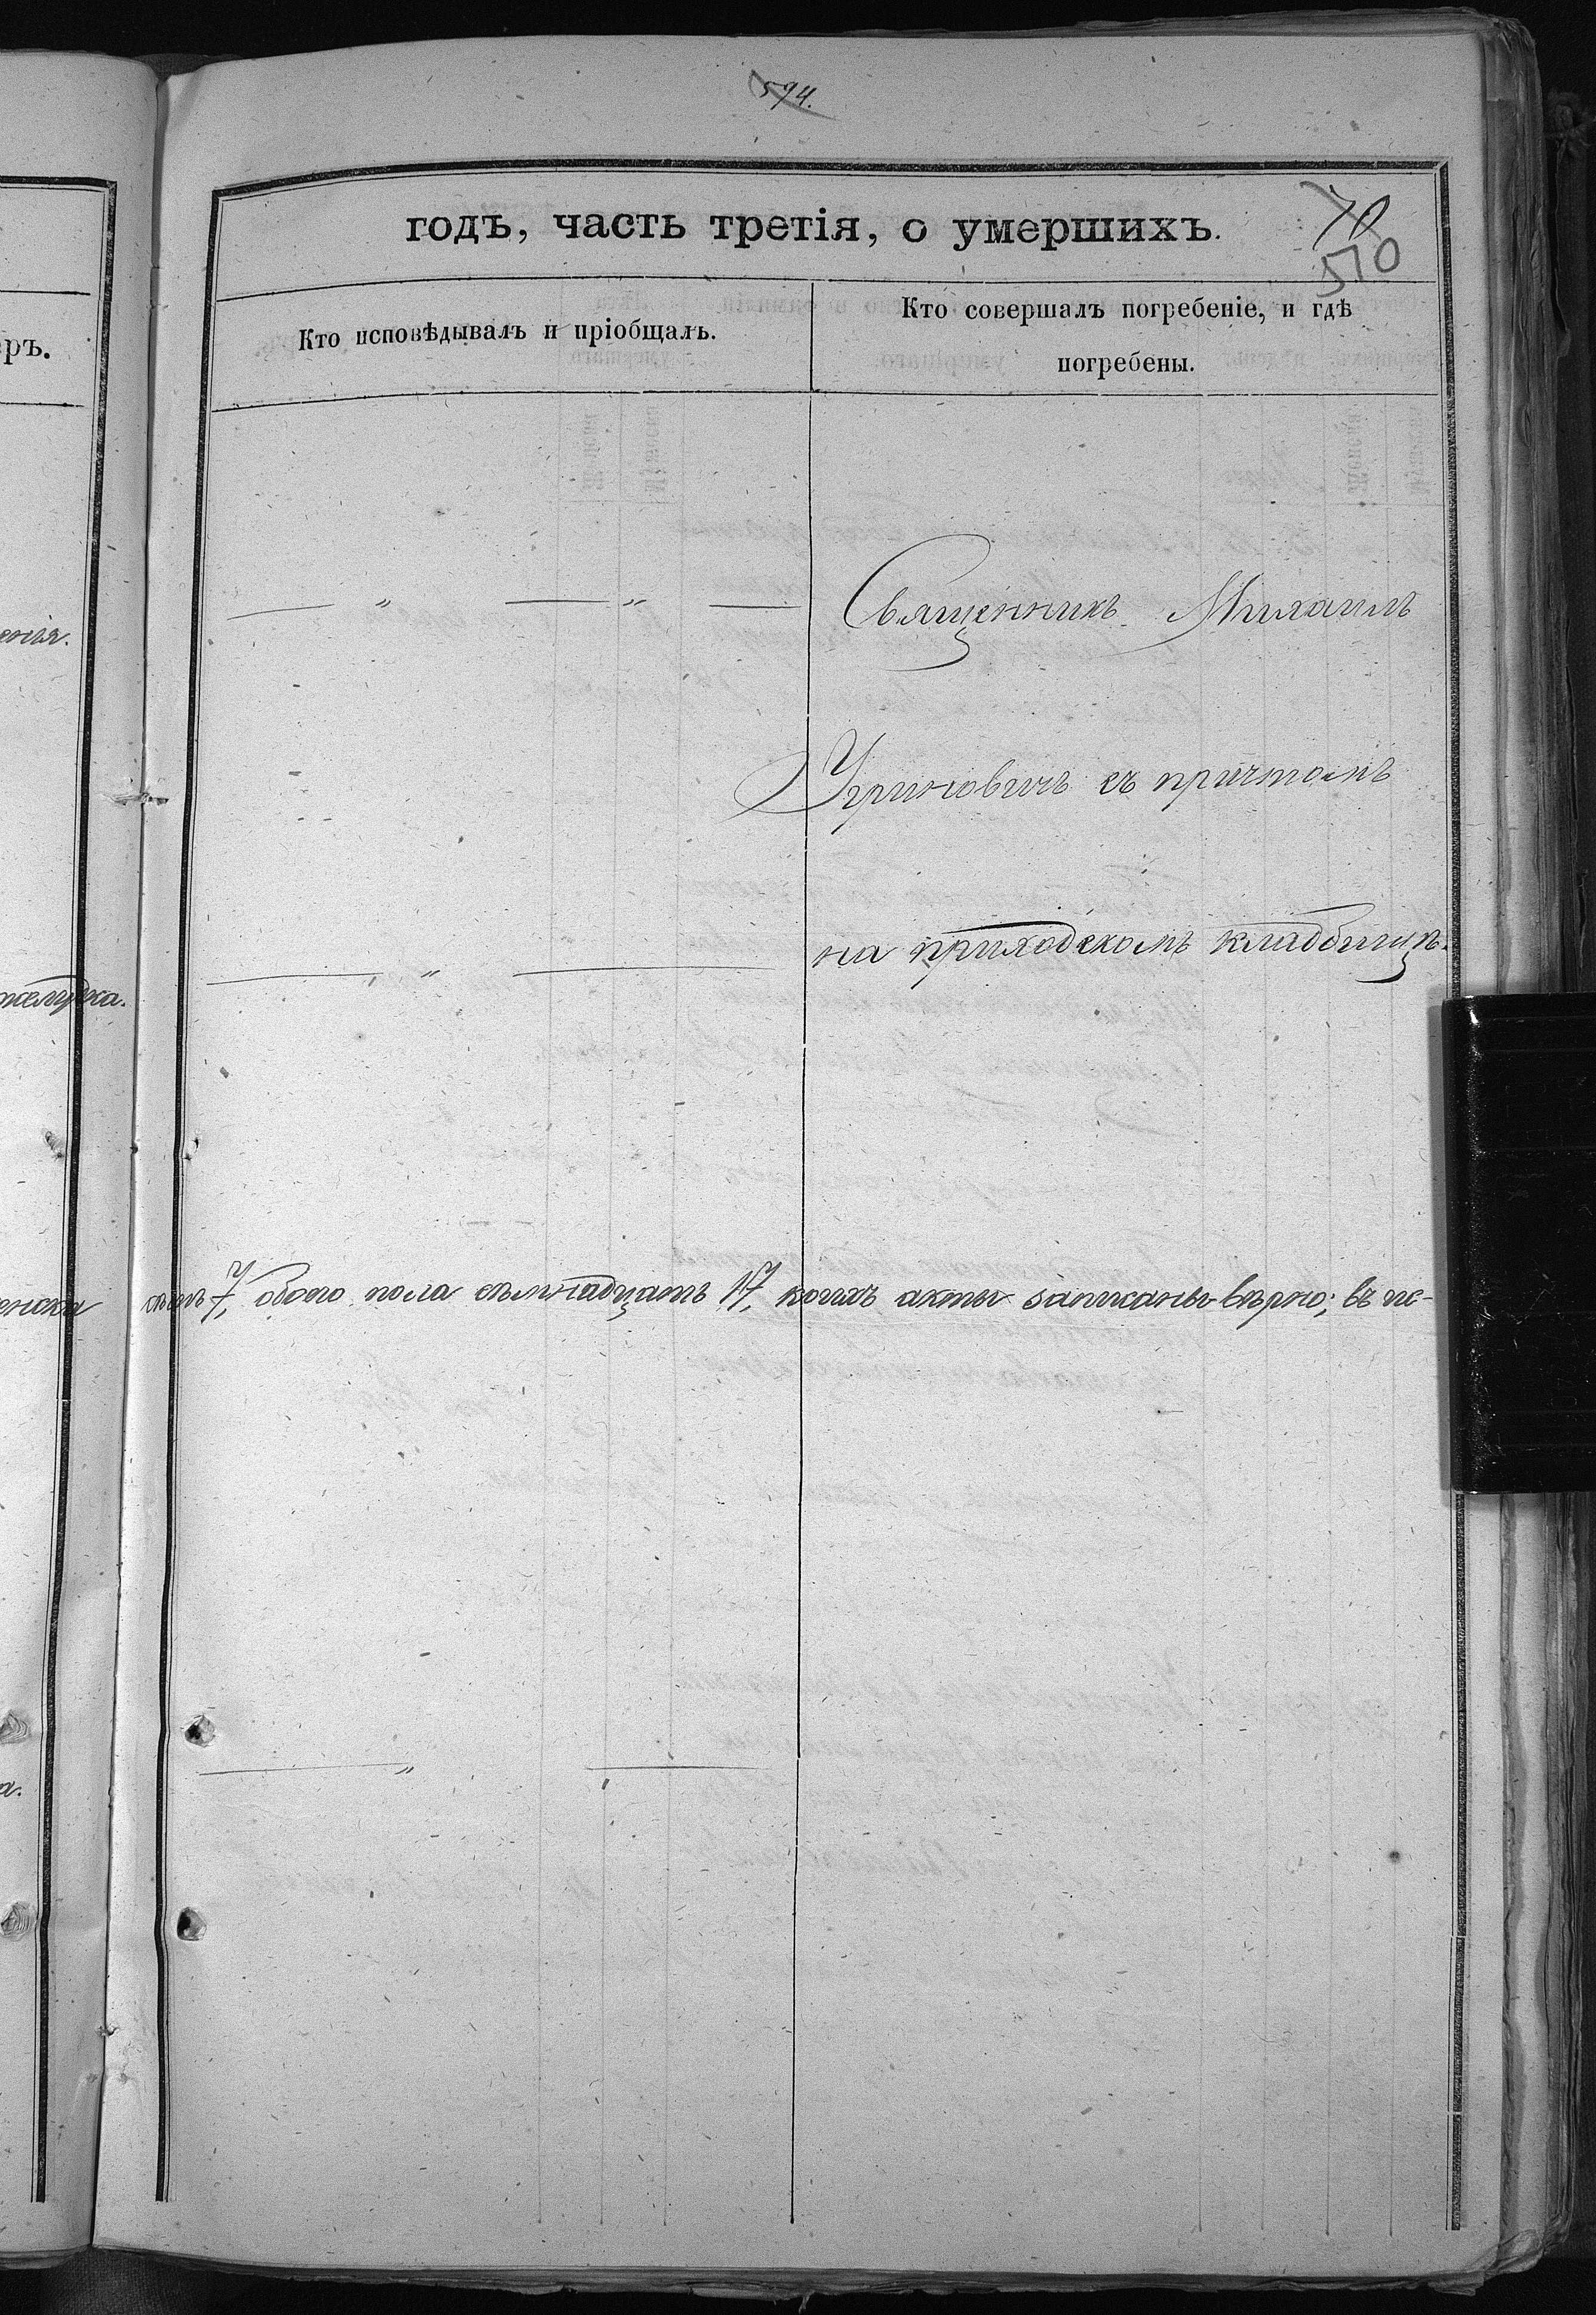 594.
годъ, часть третія, о умершихъ.
70
510
Кто исповѣдывалъ и пріобщалъ.
Кто совершалъ погребеніе, и гдѣ
погребены.
ръ.
енія.
— „ — „ —
Священникъ Михаилъ
Угриновичъ съ причтомъ
на приходскомъ кладбищѣ.
— „ —
желудка.
женска семь 7, обоего пола семнадцать 17, коихъ акты записаны вѣрно; въ че-
— „ —
а.